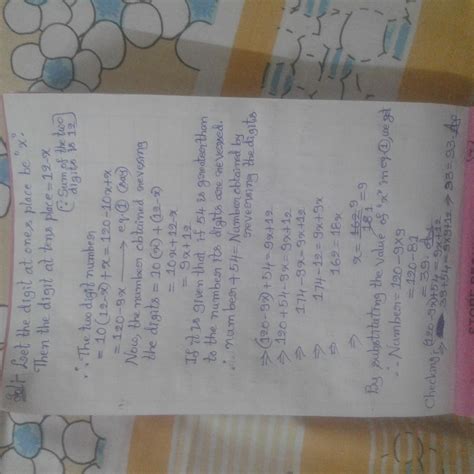 Sol:- Let the digit at ones place be "x".
Then the digit at tens place = 12-x
[∵ Sum of the two
digits is 12]
∴ The two digit number
= 10(12-x)+x = 120-10x+x
= 120-9x ⟶ eq ① (say)
Now, the number obtained reversing
the digits = 10(x) + (12-x)
= 10x+12-x
= 9x+12
If it is given that if 54 is greater than
to the number its digits are reversed.
∴ number + 54 = Number obtained by
reversing the digits
⇒ (120-9x)+54 = 9x+12
⇒ 120+54-9x = 9x+12
⇒ 174-9x = 9x+12
⇒ 174-12 = 9x+9x
⇒ 162 = 18x
⇒ x = 162/18 = 9
By substituting the value of "x" in eq ①, we get
∴ Number = 120-9x9
= 120-81
= 39.
Checking (120-9x)+54 = 9x+12
⇒ 39+54 = 9x9+12 ⇒ 93 = 93.